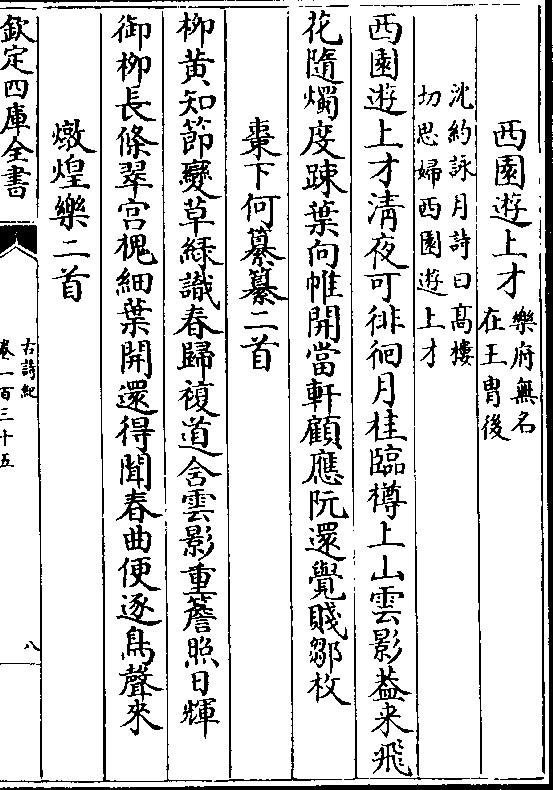 西園遊上才樂府無名
在王胄後
沈約詠月詩曰髙樓
切思婦西園遊上才
西園遊上才清夜可徘徊月桂臨樽上山雲影葢来飛
花隨燭度踈葉向帷開當軒顧應阮還覺賤鄒枚
棗下何纂纂二首
栁黄知節變草緑識春歸複道含雲影重簷照日輝
御栁長條翠宫槐細葉開還得聞春曲便逐鳥聲來
燉煌樂二首
欽定四庫全書
古詩紀
卷一百三十五
八